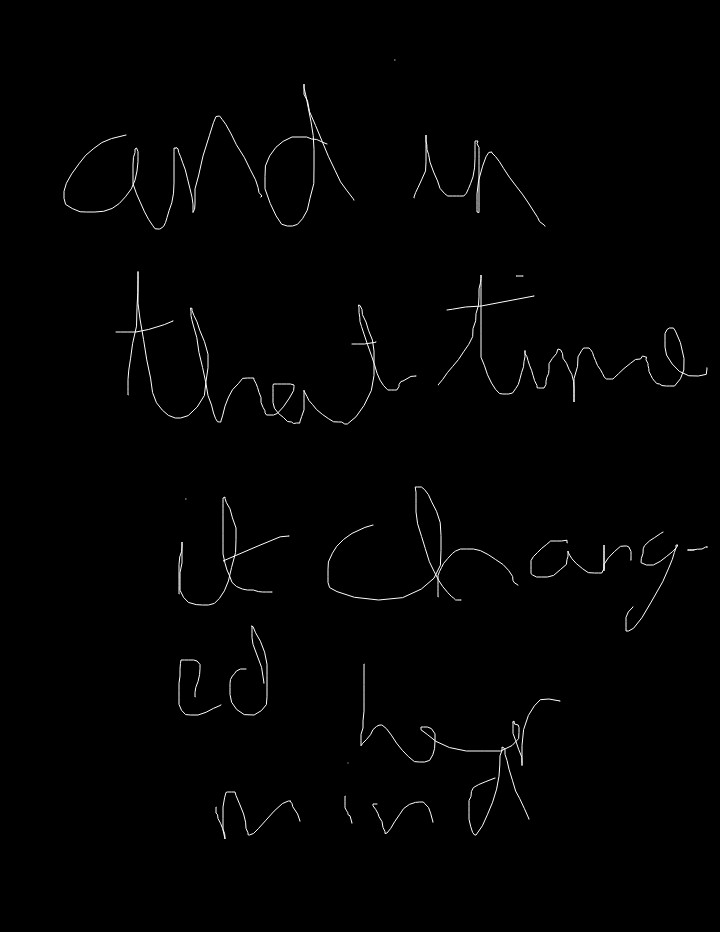 and in
that time
it chang-
ed her
mind